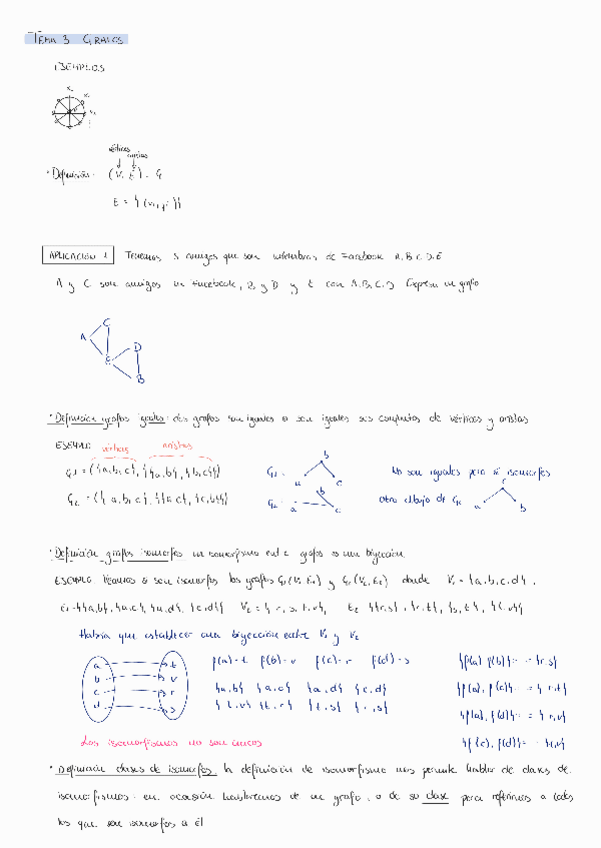 TEMA 3 GRAFOS
EJEMPLOS
vértices
aristas
· Definición: (V, E) = G
E = {(vi, vj)}
APLICACIÓN 1 Tenemos 5 amigos que son miembros de Facebook A, B, C, D, E
A y C son amigos en Facebook, B y D y E con A, B, C, D Expresa un grafo
C
A
E
D
B
· Definición grafos iguales: dos grafos son iguales si son iguales sus conjuntos de vértices y aristas
EJEMPLO vértices aristas
G1 = ({a, b, c}, {{a, b}, {b, c}})
G2 = ({a, b, c}, {{a, c}, {c, b}})
G1 =
b
a c
G2 =
b
a c
No son iguales pero sí isomorfos
otro dibujo de G2
c
a b
· Definición grafos isomorfos un isomorfismo entre grafos es una biyección
EJEMPLO Veamos si son isomorfos los grafos G1 (V1, E1) y G2 (V2, E2) donde V1 = {a, b, c, d},
E1 = {{a, b}, {a, c}, {a, d}, {c, d}} V2 = {r, s, t, v}, E2 {{r, s}, {r, t}, {s, t}, {t, v}}
Habría que establecer una biyección entre V1 y V2
a t
b v
c r
d s
f(a) = t f(b) = v f(c) = r f(d) = s
{a, b} {a, c} {a, d} {c, d}
{t, v} {t, r} {t, s} {r, s}
{f(a), f(b)} =
{f(a), f(c)} =
{f(a), f(d)} =
{f(c), f(d)} =
Los isomorfismos no son únicos
· Definición clases de isomorfos: la definición de isomorfismo nos permite hablar de clases de
isomorfismos. en ocasión hablaremos de un grafo, o de su clase para referirnos a todos
los que son isomorfos a él